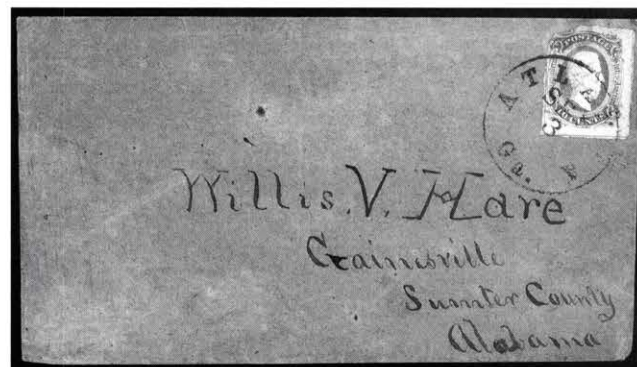 POSTAGE
ATL
Ga.
Willis. V. Hare
Gainesville
Sumter County
Alabama